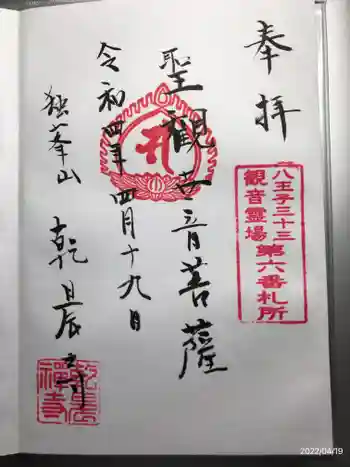 奉拝
八王子三十三
観音霊場
第六番札所
聖観世音菩薩
令和四年四月十九日
独峯山
乾晨寺
2022/04/19